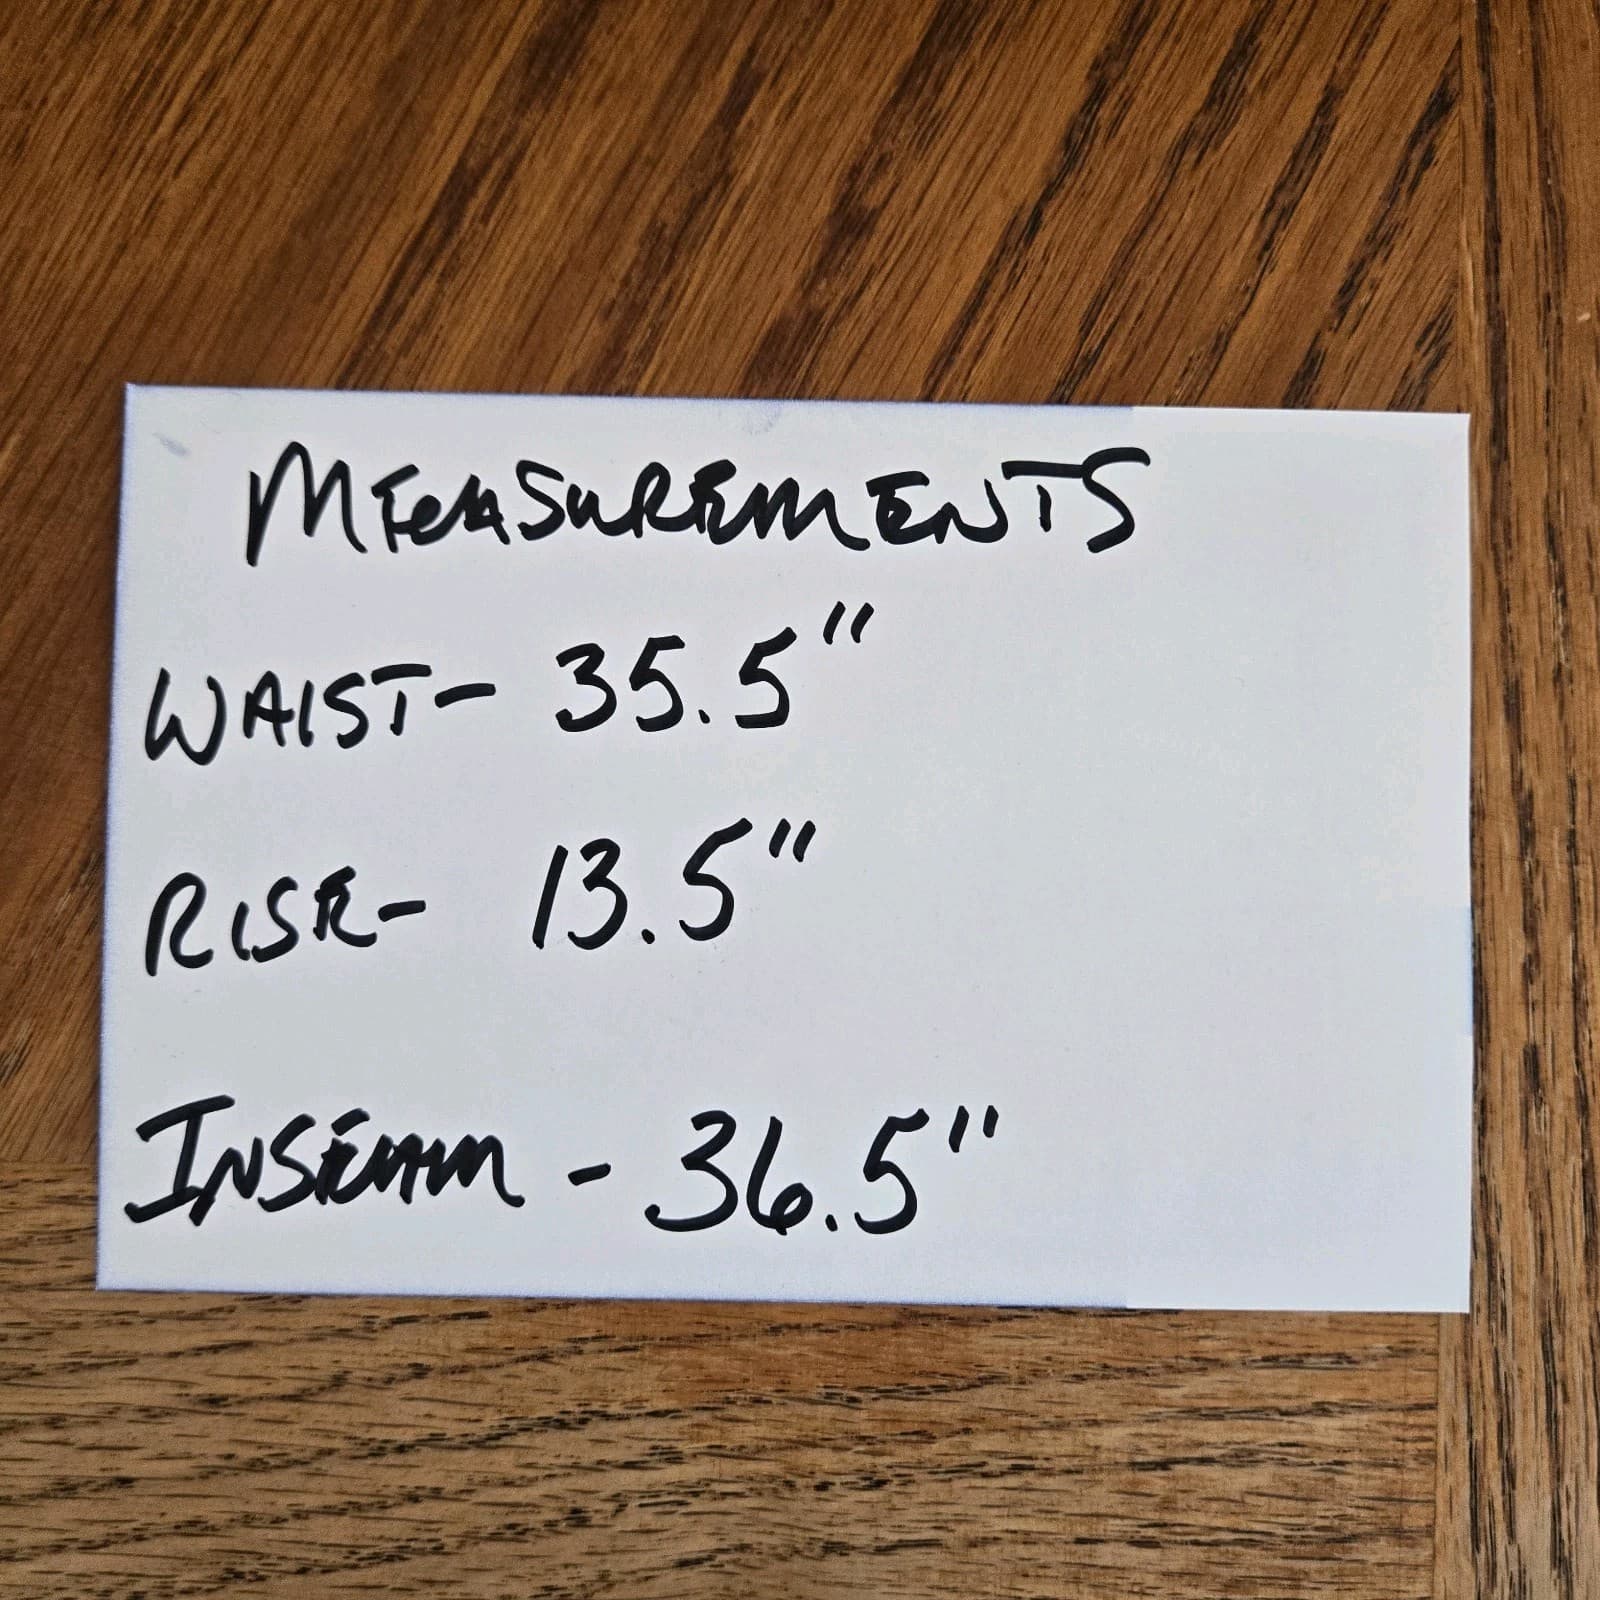 MEASUREMENTS
WAIST- 35.5"
RISE- 13.5"
INSEAM - 36.5"